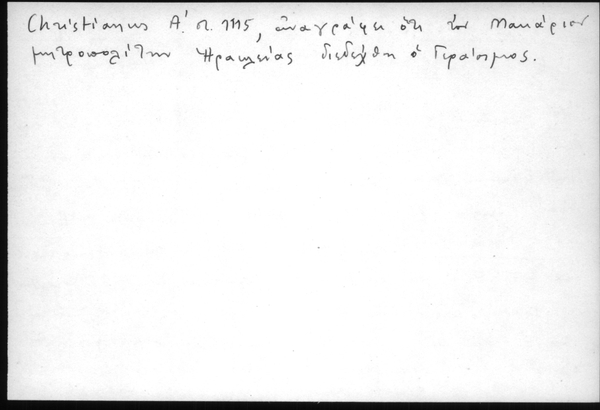 Christianus Α΄. σ. 1115, ἀναγράφει ὅτι τὸν Μακάριον
μητροπολίτην Ἡρακλείας διεδέχθη ὁ Γεράσιμος.